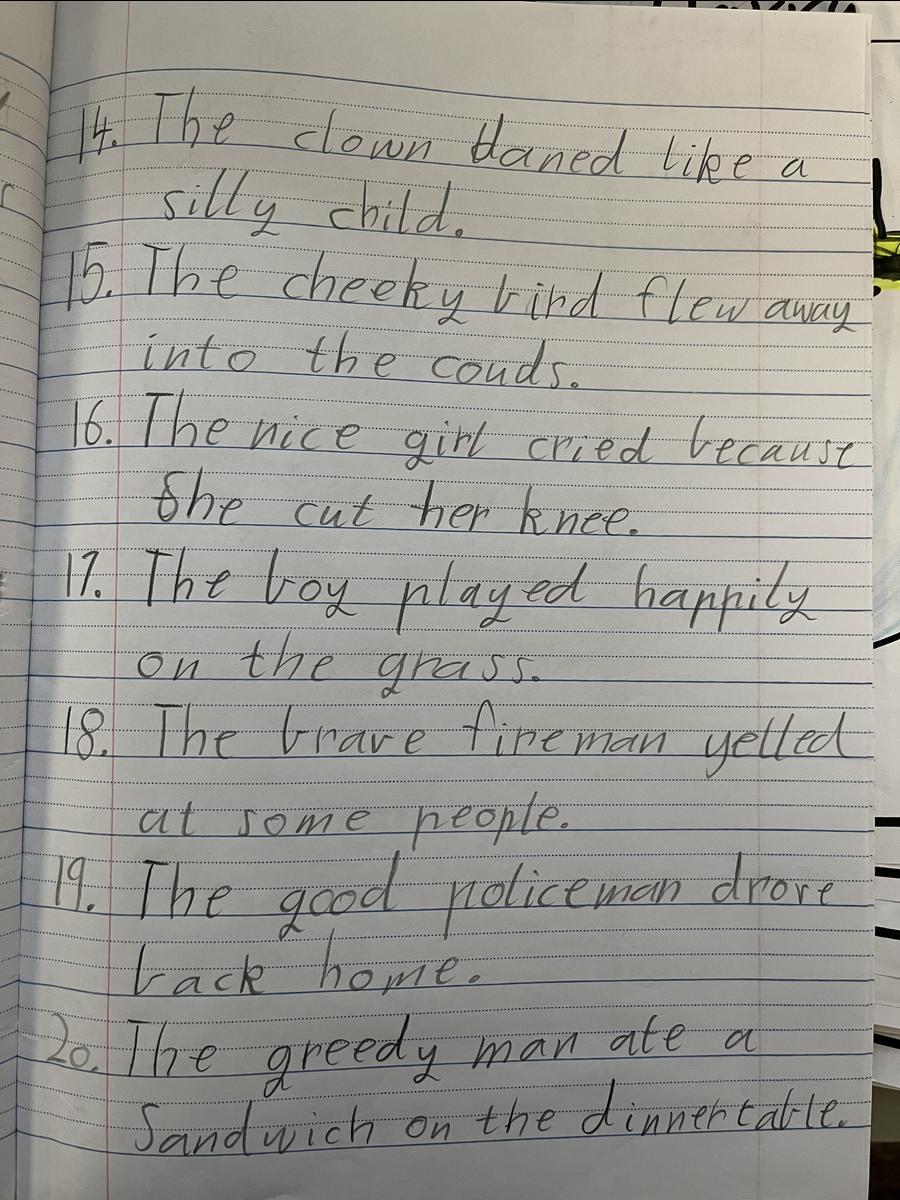 14. The clown daned like a
silly child.
15. The cheeky bird flew away
into the couds.
16. The nice girl cried because
She cut her knee.
17. The boy played happily
on the grass.
18. The brave fireman yelled
at some people.
19. The good policeman drove
back home.
20. The greedy man ate a
Sandwich on the dinnertable.